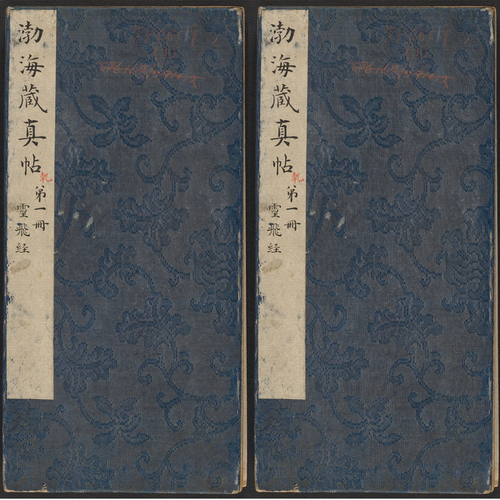 渤海蔵真帖
第一冊
靈飛経
渤海蔵真帖
第一冊
靈飛経